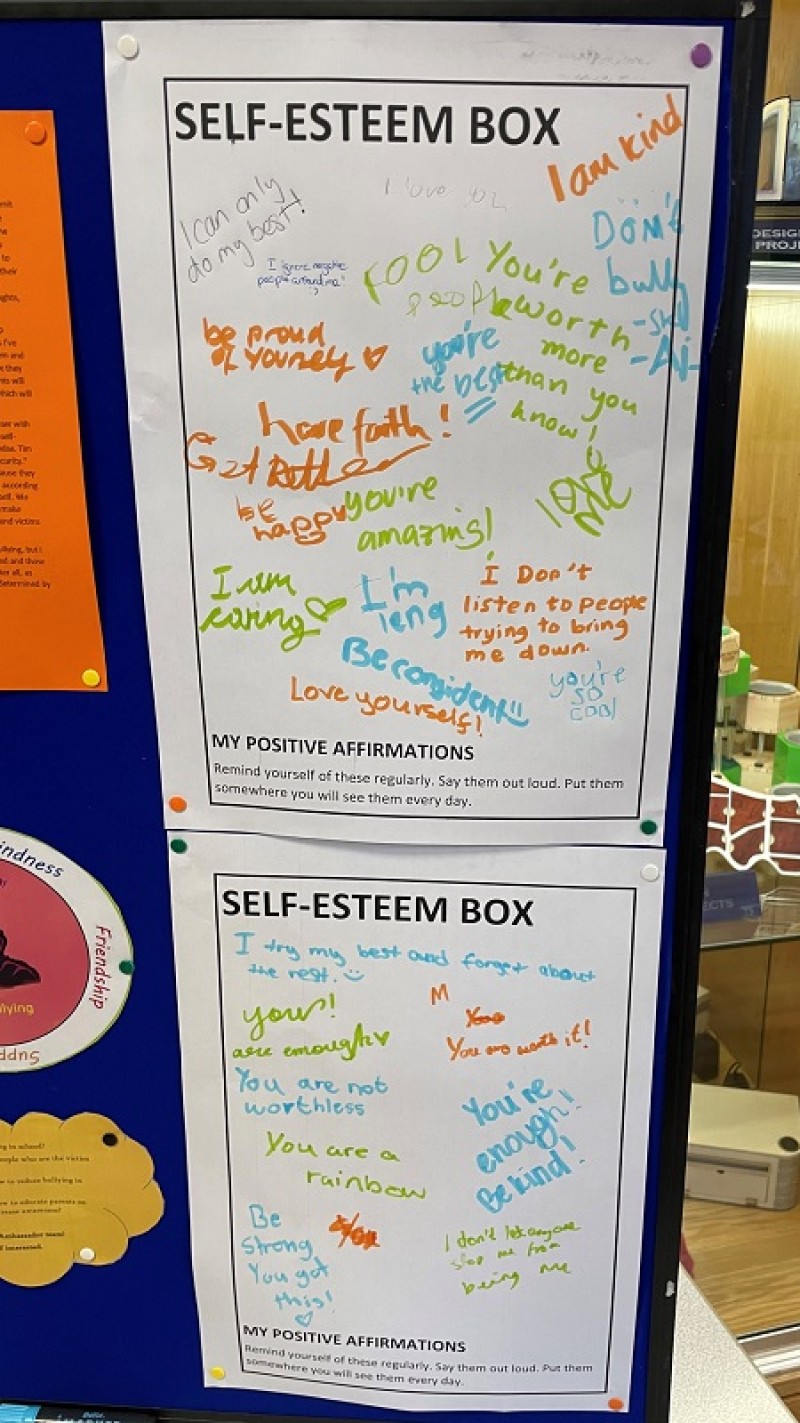 SELF-ESTEEM BOX
I am kind
I can only
do my best!
I love you
I ignore negative
people around me!
COOL
people
You're
worth
more
than you
know!
Don't
bully
be proud
of yourself
you're
the best
have faith!
Get Better
be
happy
you're
amazing!
love
I am
caring
I'm
leng
I Don't
listen to people
trying to bring
me down.
Be confident!!
Love yourself!
you're
SO
COOL
MY POSITIVE AFFIRMATIONS
Remind yourself of these regularly. Say them out loud. Put them
somewhere you will see them every day.
SELF-ESTEEM BOX
I try my best and forget about
the rest.
your!
are enough
M
You are worth it!
You are not
worthless
You're
enough!
Be kind!
You are a
rainbow
Be
Strong
You got
this!
I don't let anyone
stop me from
being me
MY POSITIVE AFFIRMATIONS
Remind yourself of these regularly. Say them out loud. Put them
somewhere you will see them every day.
indness
Friendship
lying
Supp
DESIG
PROJ
ECTS